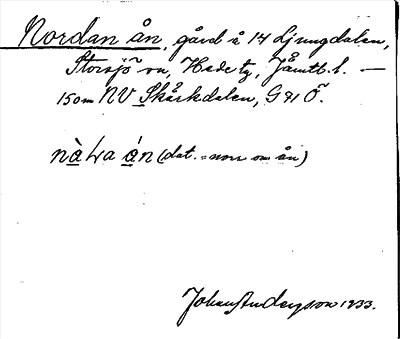 Nordan ån, gård å 14 Ljungdalen,
Storsjö sn, Hede tg, Jämtl. l. —
150 m NV Skärkdalen, G 41 Ö.
(dat. = norr om ån)
Johan Anderson 1933.